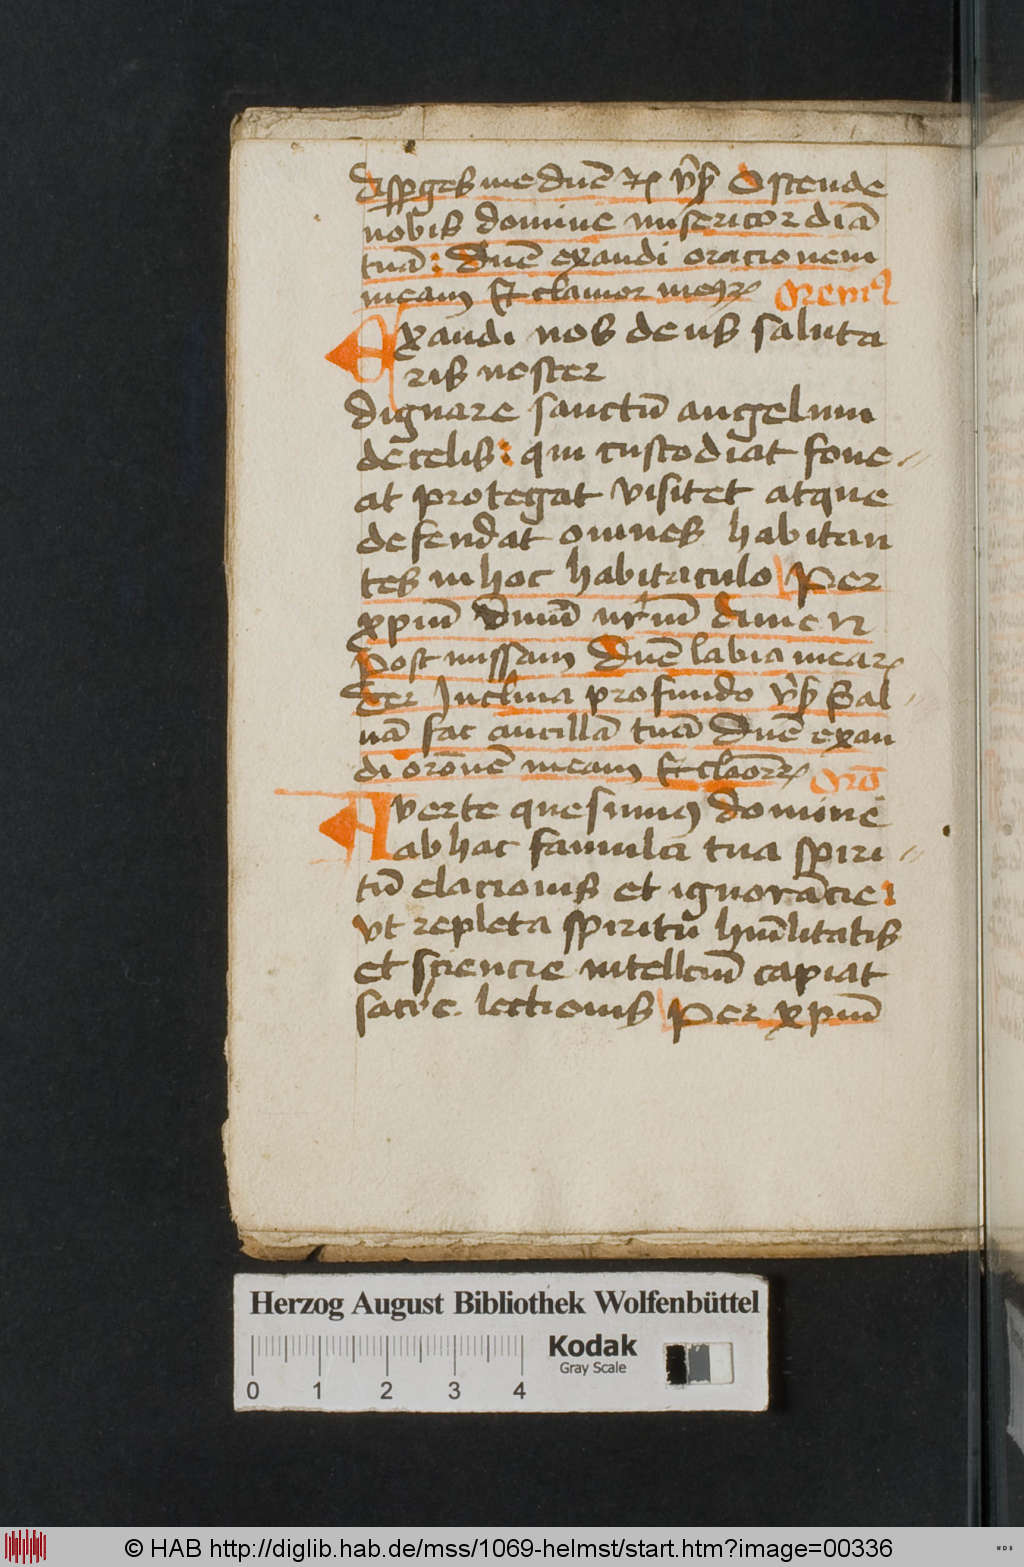 Asperges me dnē rc̄ v̄s Ostende
nobis domine misericordiā
tuā: Dnē exaudi oracionem
meam Et clamor meꝯ rc̄ Oremꝯ
Exaudi nos deus saluta
ris noster
dignare sanctū angelum
de celis: qui custodiat foue
at protegat visitet atque
defendat omnes habitan
tes in hoc habitaculo Per
xpm̄ dnm̄ nrm̄
Post missam Dnē labia mea rc̄
Ter Inclina profundo v̄s Sal
uā fac ancillā tuā Dnē exau
di orōnē meam Et claōr rc̄ Orō
Auerte quesumꝯ domine
ab hac famula tua spiri
tū elacionis et ignorācie:
vt repleta spiritu hūilitatis
et sciencie intellcm̄ capiat
sacre lectionis Per xpm̄
Herzog August Bibliothek Wolfenbüttel
Kodak
Gray Scale
0 1 2 3 4
© HAB http://diglib.hab.de/mss/1069-helmst/start.htm?image=00336